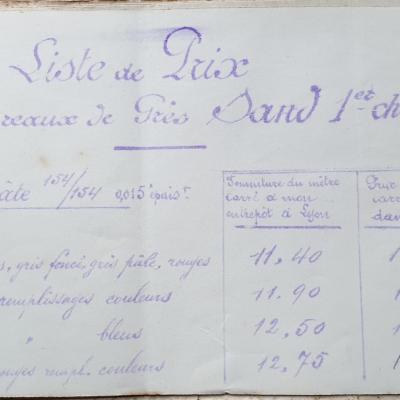 Liste de Prix
reaux de Grès Sand 1er ch
âte 154/154 0,015 épaisr.
Fourniture du mètre
carré à mon
entrepôt à Lyon
Prix
carr
dan
s, gris foncé, gris pâle, rouges 11.40 1
remplissages couleurs 11.90 1
" bleus 12.50 1
ouges rempl. couleurs 12.75 1